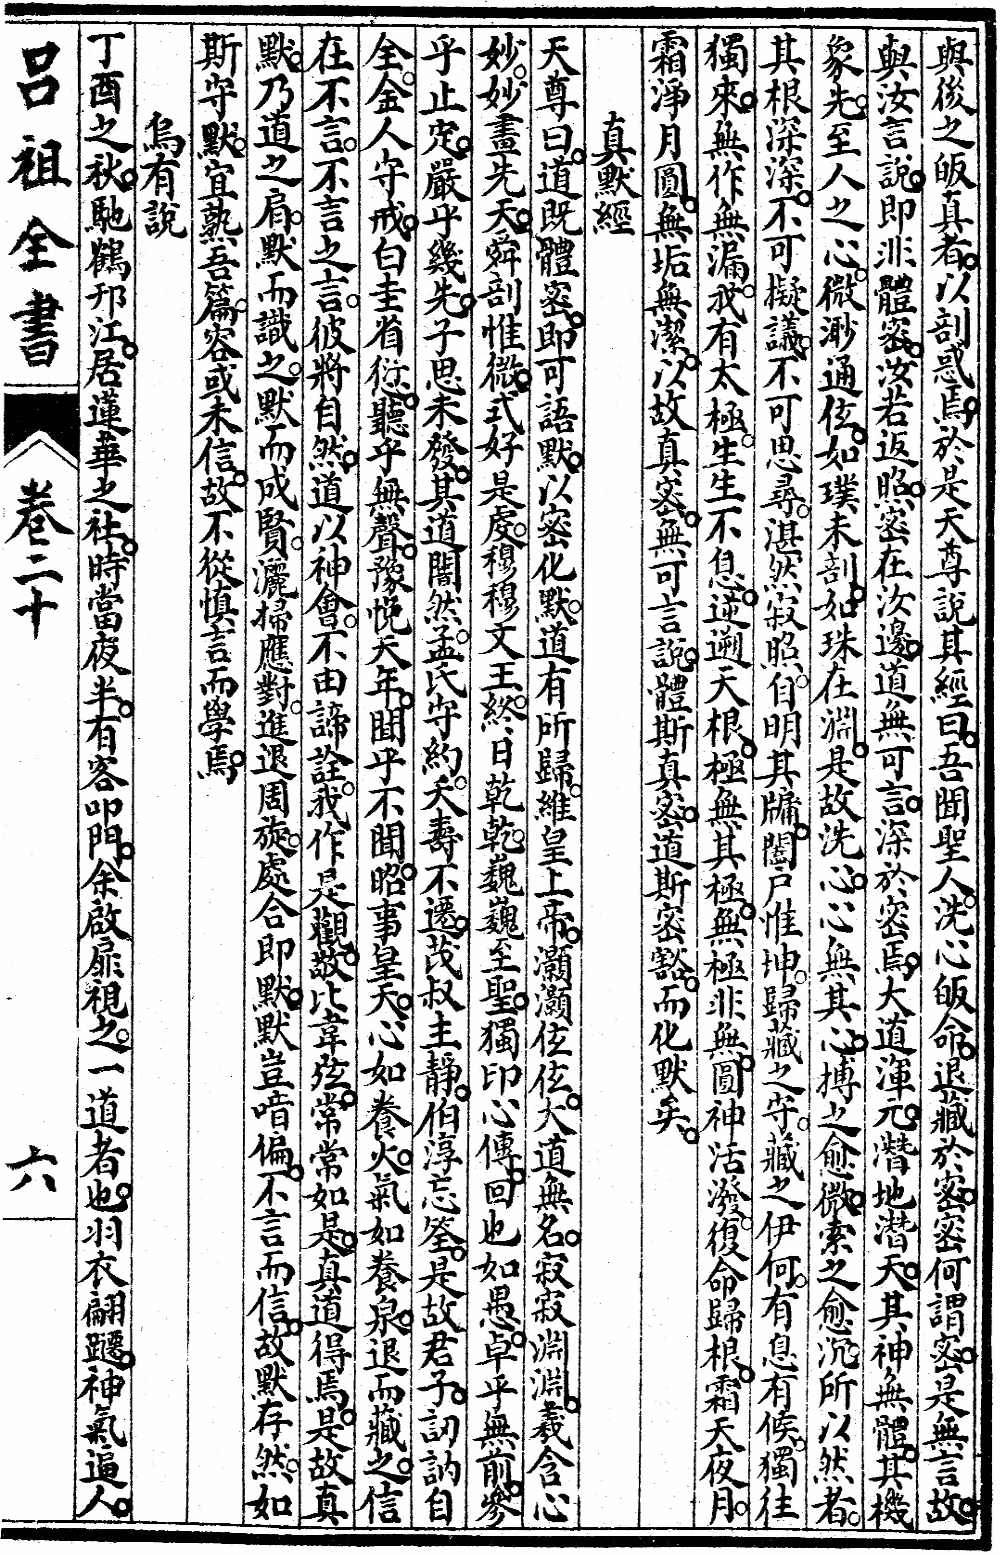 與後之皈真者以剖惑焉於是天尊說其經曰吾聞聖人洗心皈命退藏於密密何謂密是無言故
與汝言說即非體密汝若返照密在汝邊道無可言深於密焉大道渾元潛地潛天其神無體其機
象先至人之心微渺通伭如璞未剖如珠在淵是故洗心心無其心搏之愈微索之愈沉所以然者
其根深深不可擬議不可思尋湛然寂照自明其牖闔戶惟坤歸藏之守藏之伊何有息有候獨往
獨來無作無漏我有太極生生不息逆遡天根極無其極無極非無圓神活潑復命歸根霜天夜月
霜淨月圓無垢無潔以故真密無可言說體斯真密道斯密豁而化默矣
真默經
天尊曰道既體密即可語默以密化默道有所歸維皇上帝灝灝伭伭大道無名寂寂淵淵羲含心
妙妙畫先天舜剖惟微式好是處穆穆文王終日乾乾巍巍至聖獨印心傳回也如愚卓乎無前參
乎止定嚴乎幾先子思未發其道闇然孟氏守約夭壽不遷茂叔主靜伯淳忘筌是故君子訒訥自
全金人守戒白圭省愆聽乎無聲豫悅天年聞乎不聞昭事皇天心如養火氣如養泉退而藏之信
在不言不言之言彼將自然道以神會不由諦詮我作是觀敬比韋弦常常如是真道得焉是故真
默乃道之肩默而識之默而成賢灑掃應對進退周旋處合即默默豈喑偏不言而信故默存然如
斯守默宜熟吾篇客或未信故不從慎言而學焉
烏有說
丁酉之秋馳鶴邗江居蓮華之社時當夜半有客叩門余啟扉視之一道者也羽衣翩躚神氣逼人
呂祖全書
卷二十
六